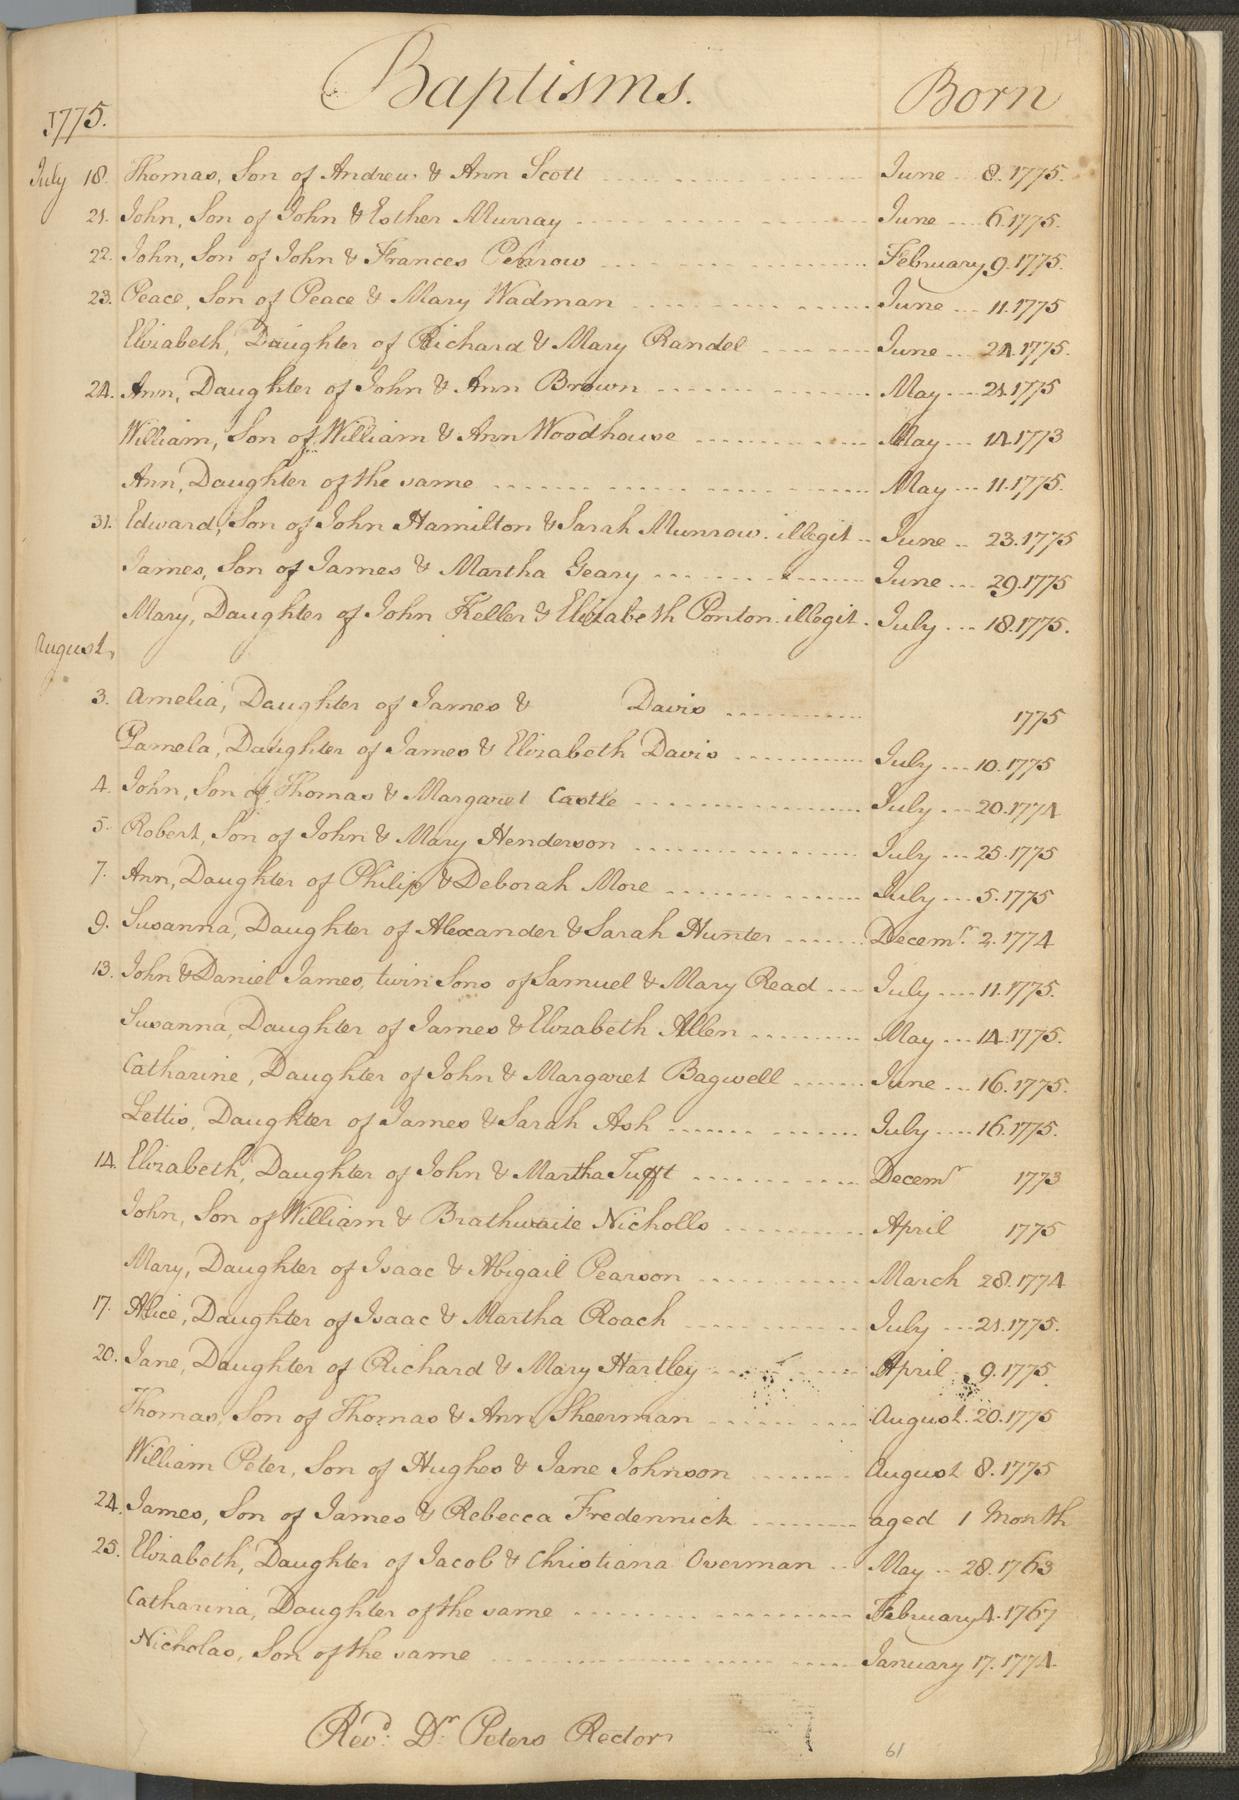 Baptisms. Born
1775.
July 18. Thomas, Son of Andrew & Ann Scott June 8. 1775.
21. John, Son of John & Esther Murray June 6. 1775.
22. John, Son of John & Frances February 9. 1775.
23. Peace, Son of Peace & Mary Wadman June 11. 1775
Elizabeth, Daughter of Richard & Mary Randel June 24. 1775.
24. Ann, Daughter of John & Ann Brown May 21. 1775
William, Son of William & Ann Woodhouse May 14. 1773
Ann, Daughter of the same May 11. 1775.
31. Edward, Son of John Hamilton & Sarah Munrow. illegit June 23. 1775
James, Son of James & Martha Geary June 29. 1775
Mary, Daughter of John Keller & Elizabeth Ponton. illegit. July 18. 1775.
August,
3. Amelia, Daughter of James & Davis 1775
Pamela, Daughter of James & Elizabeth Davis July 10. 1775
4. John, Son of Thomas & Margaret Castle July 20. 1774
5. Robert, Son of John & Mary Henderson July 25. 1775
7. Ann, Daughter of Philip & Deborah More July 5. 1775
9. Susanna, Daughter of Alexander & Sarah Hunter Decemr. 2. 1774
13. John & Daniel James, twin Sons of Samuel & Mary Read July 11. 1775.
Susanna, Daughter of James & Elizabeth Allen May 14. 1775.
Catharine, Daughter of John & Margaret Bagwell June 16. 1775.
Lettis, Daughter of James & Sarah Ash July 16. 1775.
14. Elizabeth, Daughter of John & Martha Tufft Decemr 1773
John, Son of William & Brathwaite Nicholls April 1775
Mary, Daughter of Isaac & Abigail Pearson March 28. 1774
17. Alice, Daughter of Isaac & Martha Roach July 21. 1775.
20. Jane, Daughter of Richard & Mary Hartley April 9. 1775
Thomas, Son of Thomas & Ann Sheerman August. 20. 1775
William Peter, Son of Hughes & Jane Johnson August 8. 1775
24. James, Son of James & Rebecca Fredennick aged 1 Month
25. Elizabeth, Daughter of Jacob & Christiana Overman May 28. 1763
Catharina, Daughter of the same February 4. 1767
Nicholas, Son of the same January 17. 1774
Revd: Dr Peters Rector
61